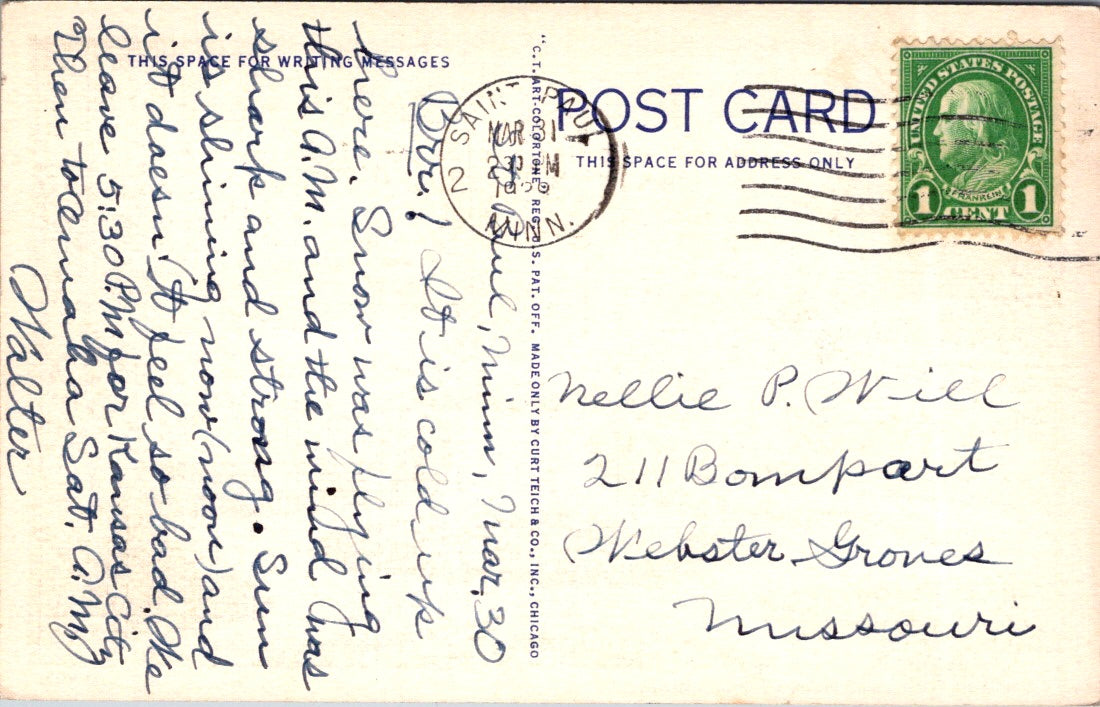 THIS SPACE FOR WRITING MESSAGES
POST CARD
THIS SPACE FOR ADDRESS ONLY
"C.T. ART-COLORTONE" REG. U.S. PAT. OFF. MADE ONLY BY CURT TEICH & CO., INC., CHICAGO
SAINT PAUL
MAR 31
2 PM
MINN.
2
UNITED STATES POSTAGE
FRANKLIN
1 CENT 1
Paul, Minn, Mar. 30
Brr! It is cold up
there. Snow was flying
this A.M. and the wind was
sharp and strong. Sun
is shining now (noon) and
it doesn't feel so bad. We
leave 5:30 P.M for Kansas City
Then to Omaha Sat. A.M
Walter
Nellie P. Will
211 Bompart
Webster Groves
Missouri